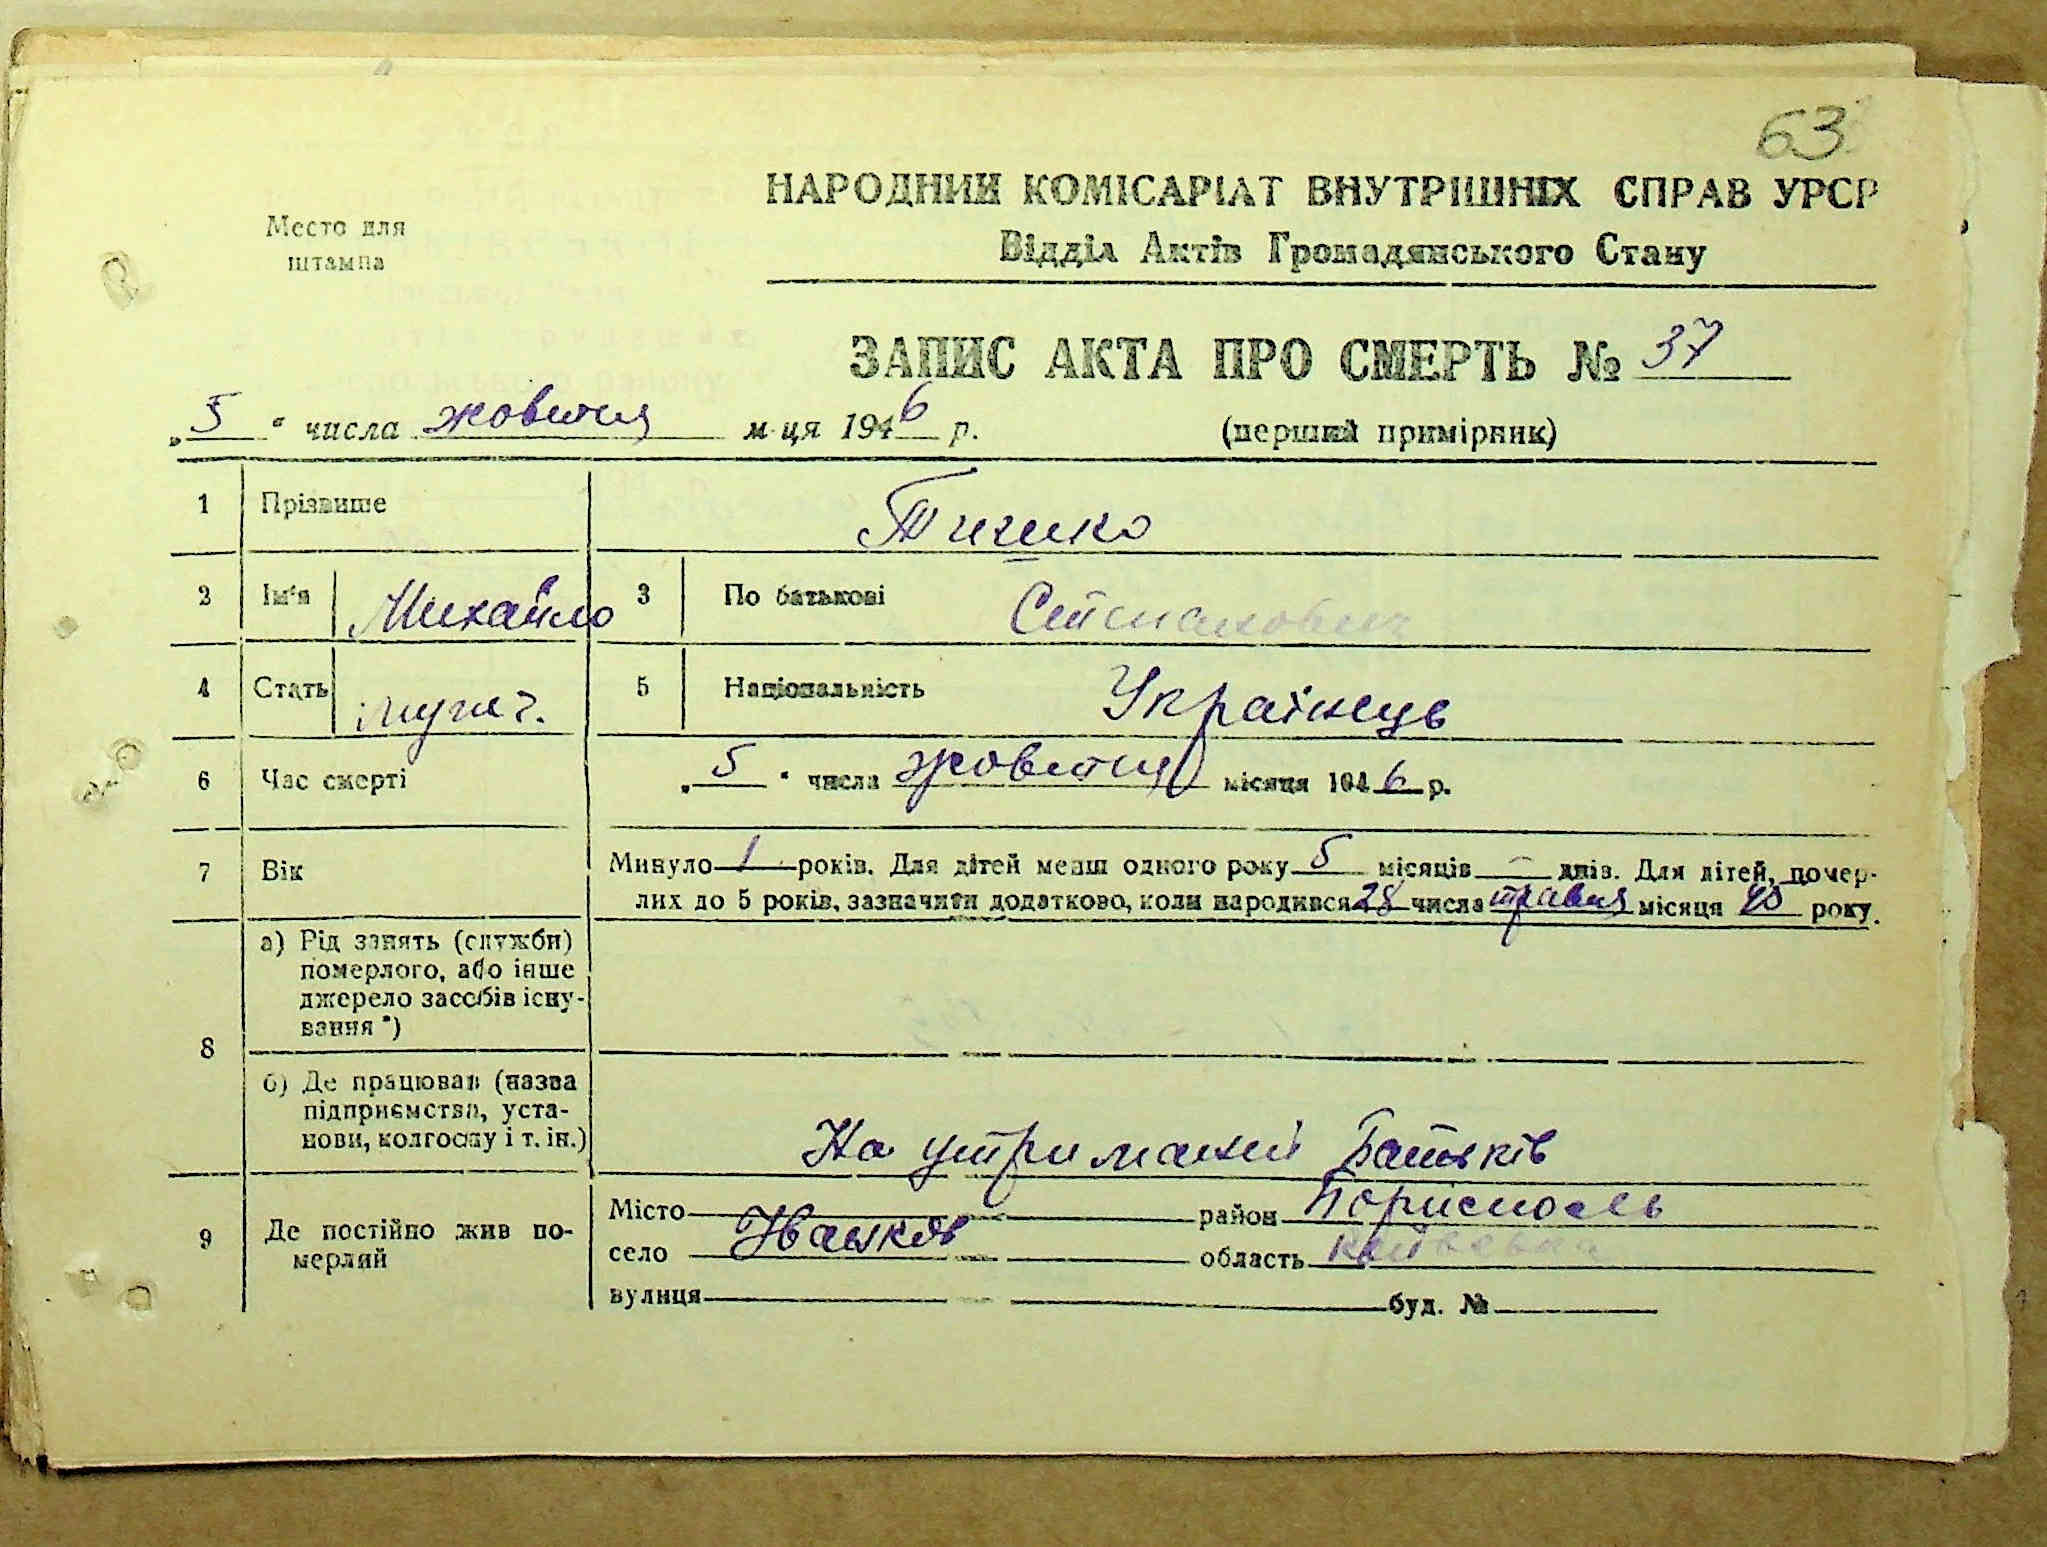 63
Место для
штампа
НАРОДНИЙ КОМІСАРІАТ ВНУТРІШНІХ СПРАВ УРСР
Відділ Актів Громадянського Стану
ЗАПИС АКТА ПРО СМЕРТЬ № 37
„5“ числа жовтня м-ця 1946 р. (перший примірник)
1 Прізвище
2 Ім'я Михайло 3 По батькові Степанович
4 Стать 5 Національність Українець
6 Час смерті „5“ числа жовтня місяця 1946 р.
7 Вік Минуло 1 років. Для дітей менш одного року 5 місяців — днів. Для дітей, помер-
лих до 5 років, зазначити додатково, коли народився 28 числа травня місяця року.
8 а) Рід занять (служби)
померлого, або інше
джерело засобів існу-
вання *)
б) Де працював (назва
підприємства, уста-
нови, колгоспу і т. ін.) На утриманні Батьків
9 Де постійно жив по-
мерлий
Місто район Бориспоель
село Іваньков область
вулиця буд. №